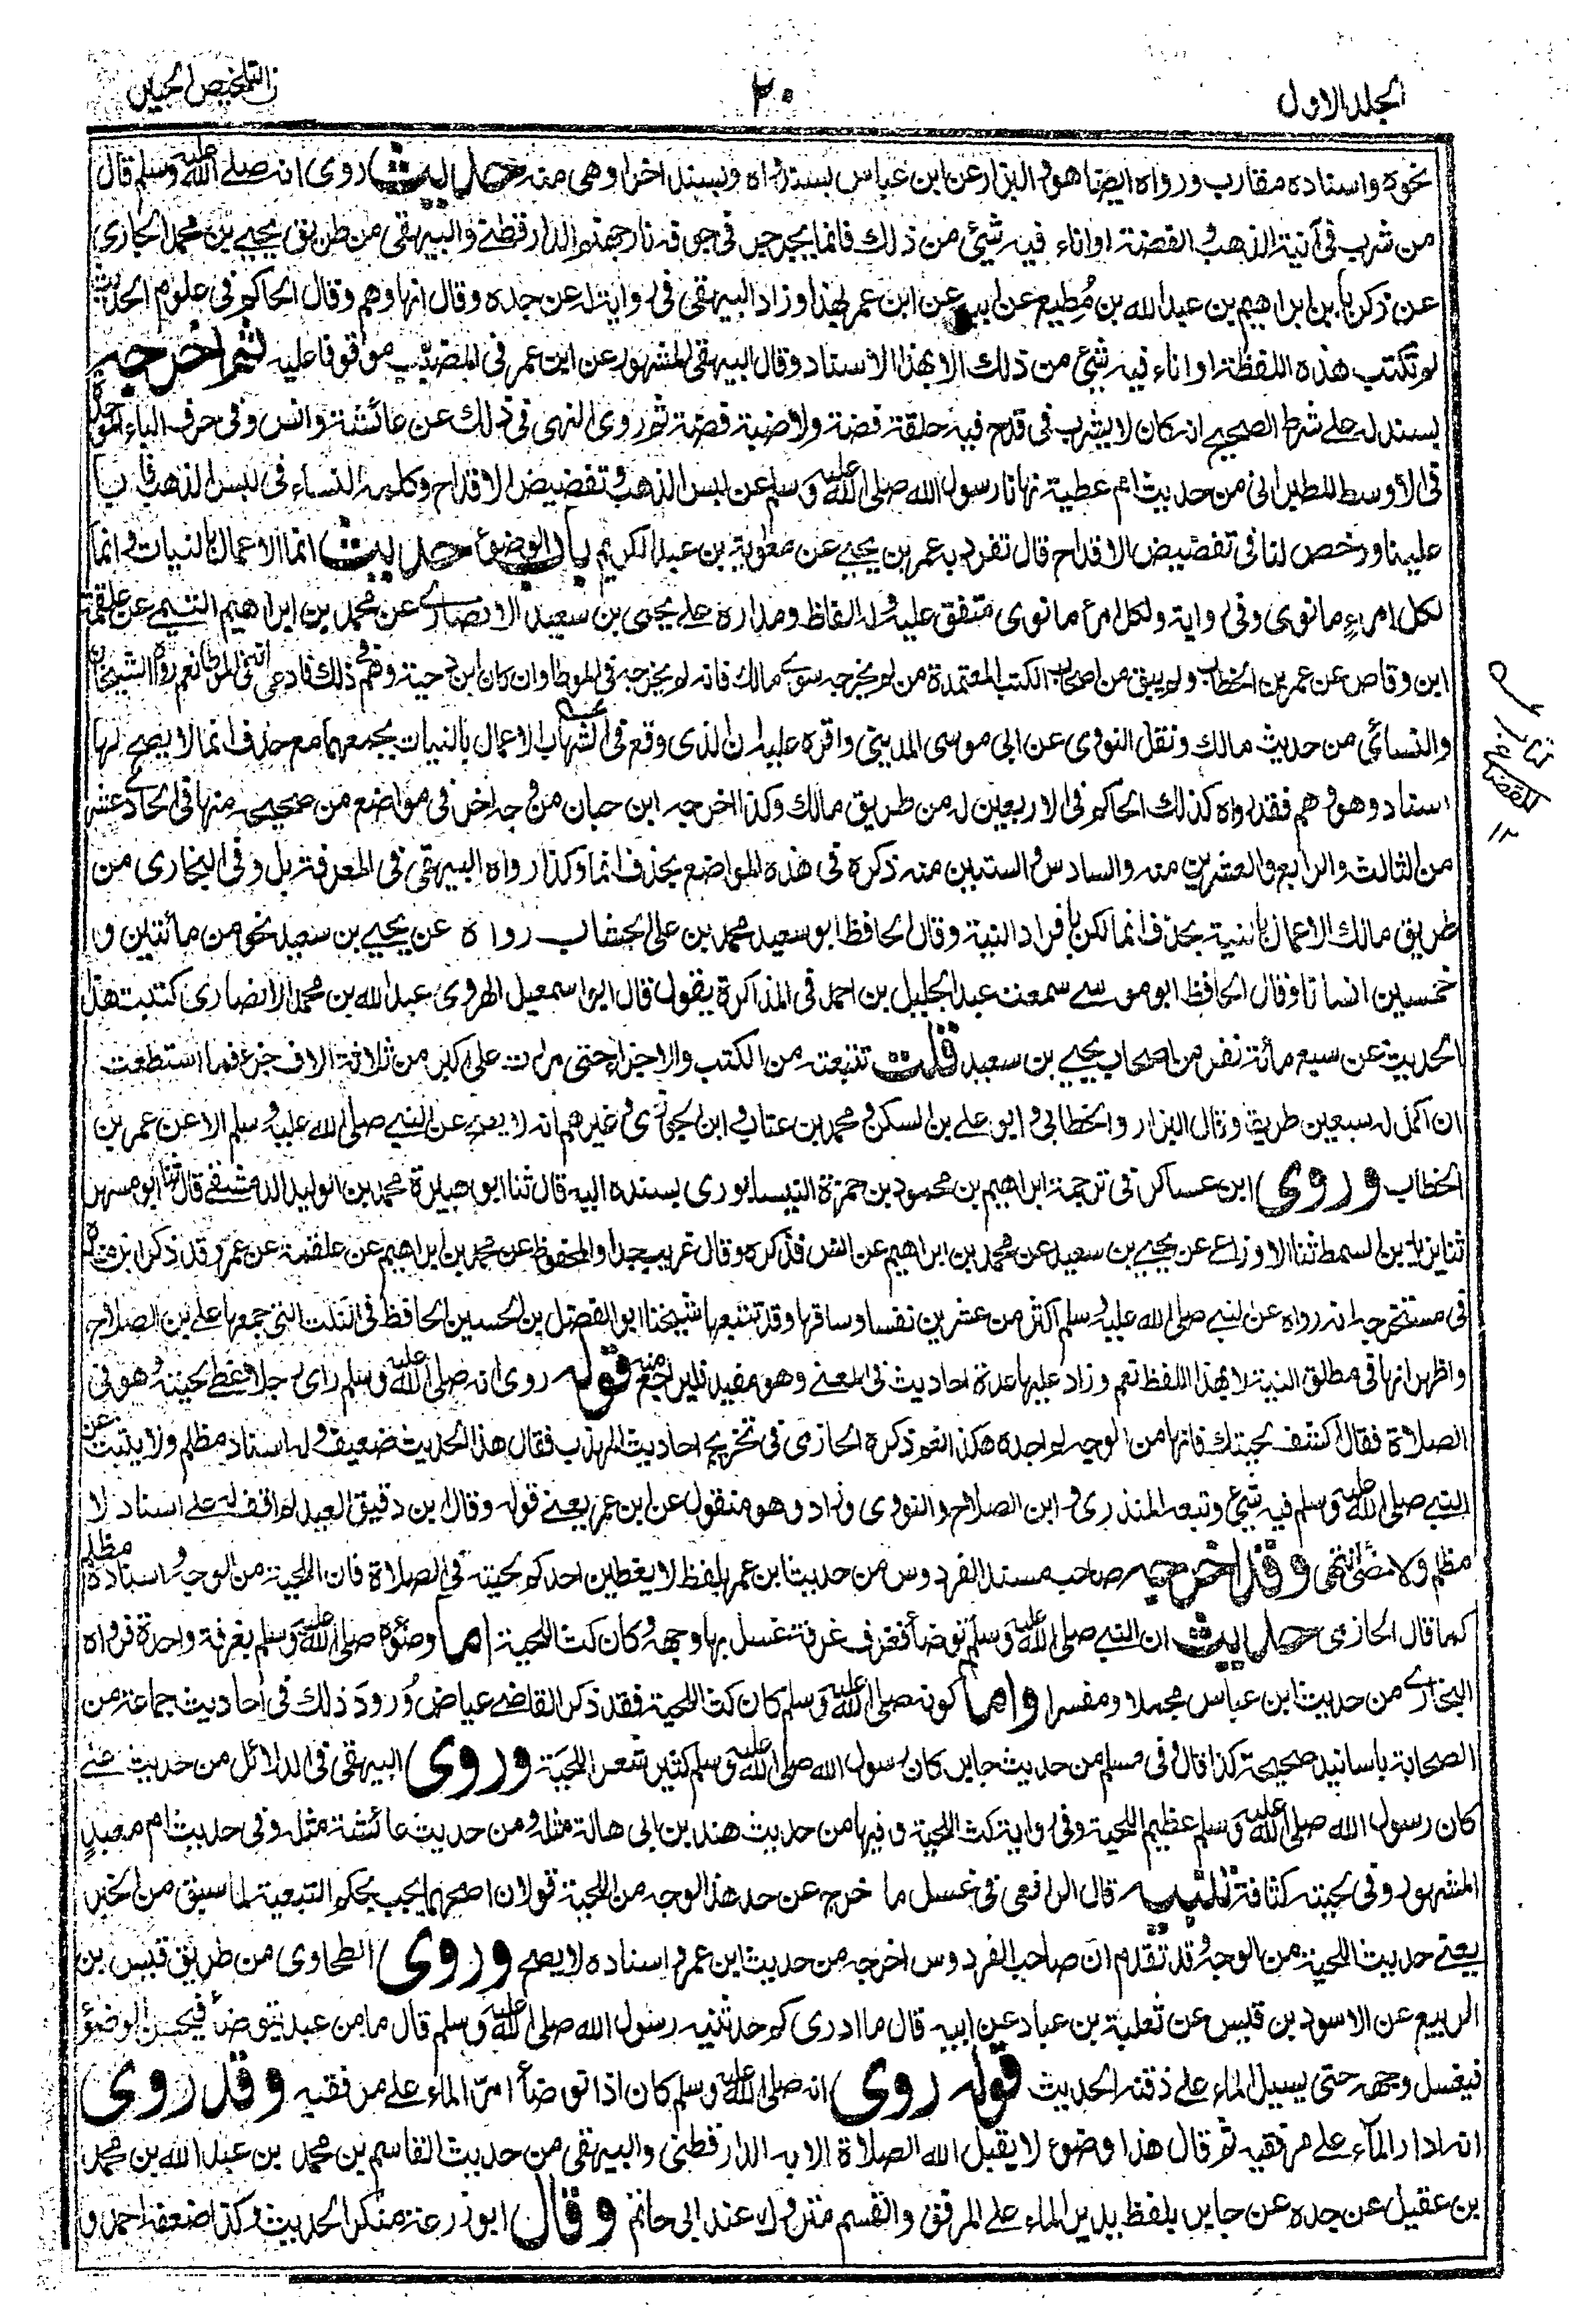 الجلد الاول
٢٠
التلخيص الحبير
نحوه واسناده مقارب ورواه ايضا هو والبزار عن ابن عباس بسند رواه وبسند اخر اوهى منه حديث روى انه صلى الله عليه وسلم قال
من شرب فى آنية الذهب والفضة او اناء فيه شئ من ذلك فانما يجرجر فى جوفه نار جهنم الدارقطنى والبيهقى من طريق يحيى بن محمد الجارى
عن زكريا بن ابراهيم بن عبد الله بن مُطيع عن ابيه عن ابن عمر بهذا وزاد البيهقى فى رواية له عن جده وقال انها وهم وقال الحاكم فى علوم الحديث
لم تكتب هذه اللفظة او اناء فيه شئ من ذلك الا بهذا الاسناد وقال البيهقى المشهور عن ابن عمر فى المضبّب موقوفا عليه ثم اخرجه
بسند له على شرط الصحيح انه كان لا يشرب فى قدح فيه حلقة فضة ولا ضبة فضة ثم روى النهى فى ذلك عن عائشة وانس وفى حرف الباء الموحدة
فى الاوسط للطبرانى من حديث ام عطية نهانا رسول الله صلى الله عليه وسلم عن لبس الذهب وتفضيض الاقداح وكلمه النساء فى لبس الذهب فابى
علينا ورخص لنا فى تفضيض الاقداح قال تفرد به عمر بن يحيى عن معوية بن عبد الكريم باب الوضوء حديث انما الاعمال بالنيات وانما
لكل امرءٍ ما نوى وفى رواية ولكل امرء ما نوى متفق عليه وله الفاظ ومداره على يحيى بن سعيد الانصارى عن محمد بن ابراهيم التيمى عن علقمة
ابن وقاص عن عمر بن الخطاب ولم يبق من اصحاب الكتب المعتمدة من لم يخرجه سوى مالك فانه لم يخرجه فى الموطا وان كان ابن دحية وهم فى ذلك فادعى انه فى الموطا نعم رواه الشيخان
والنسائى من حديث مالك ونقل النووى عن ابى موسى المدينى واقره عليه ان الذى وقع فى الشهاب الاعمال بالنيات بجمعهما مع حذف انما لا يصح لها
اسناد وهو وهم فقد رواه كذلك الحاكم فى الاربعين له من طريق مالك وكذا اخرجه ابن حبان من وجه اخر فى مواضع من صحيحه منها فى الحادى عشر
من الثالث والرابع والعشرين منه والسادس والستين منه ذكره فى هذه المواضع بحذف انما وكذا رواه البيهقى فى المعرفة بل وفى البخارى من
طريق مالك الاعمال بالنية بحذف انما لكن بافراد النية وقال الحافظ ابو سعيد محمد بن على الخشاب رواه عن يحيى بن سعيد نحو من مائتين و
خمسين انسانا وقال الحافظ ابو موسى سمعت عبد الجليل بن احمد فى المذاكرة يقول قال ابو اسمعيل الهروى عبد الله بن محمد الانصارى كتبت هذا
الحديث عن سبع مائة نفر من اصحاب يحيى بن سعيد قلت تتبعته من الكتب والاجزاء حتى مررت على اكثر من ثلاثة الاف جزء فما استطعت
ان اكمل له سبعين طريقا وقال البزار والخطابى وابو على بن السكن ومحمد بن عتاب وابن الجوزى وغيرهم انه لا يصح عن النبى صلى الله عليه وسلم الا عن عمر بن
الخطاب وروى ابن عساكر فى ترجمة ابراهيم بن محمود بن حمزة النيسابورى بسنده اليه قال ثنا ابو هبيرة محمد بن الوليد الدمشقى قال ثنا ابو مسهر
ثنا يزيد بن السمط ثنا الاوزاعى عن يحيى بن سعيد عن محمد بن ابراهيم عن انس فذكره وقال غريب جدا والمحفوظ عن محمد بن ابراهيم عن علقمة عن عمر وقد ذكر ابن منده
فى مستخرجه انه رواه عن النبى صلى الله عليه وسلم اكثر من عشرين نفسا وساقها وقد تتبعها شيخنا ابو الفضل بن الحسين الحافظ فى النكت التى جمعها على بن الصلاح
واظهر انها فى مطلق النية لا بهذا اللفظ نعم وزاد عليها عدة احاديث فى المعنى وهو مفيد فليراجع منه قوله روى انه صلى الله عليه وسلم راى رجلا غطى لحيته وهو فى
الصلاة فقال اكشف لحيتك فانها من الوجه لم اجده هكذا نعم ذكره الحازمى فى تخريج احاديث المهذب فقال هذا الحديث ضعيف وله اسناد مظلم ولا يثبت عن
النبى صلى الله عليه وسلم فيه شئ وتبعه المنذرى وابن الصلاح والنووى وزاد وهو منقول عن ابن عمر يعنى قوله وقال ابن دقيق العيد لم اقف له على اسناد لا
مظلم ولا مضئ انتهى وقد اخرجه صاحب مسند الفردوس من حديث ابن عمر بلفظ لا يغطين احدكم لحيته فى الصلاة فان اللحية من الوجه واسناده مظلم
كما قال الحازمى حديث ان النبى صلى الله عليه وسلم توضأ فغرف غرفة غسل بها وجهه وكان كث اللحية اما وضوؤه صلى الله عليه وسلم بغرفة واحدة فرواه
البخارى من حديث ابن عباس مجملا ومفسرا واما كونه صلى الله عليه وسلم كان كث اللحية فقد ذكر القاضى عياض وُرودَ ذلك فى احاديث جماعة من
الصحابة باسانيد صحيحة كذا قال وفى مسلم من حديث جابر كان رسول الله صلى الله عليه وسلم كثير شعر اللحية وروى البيهقى فى الدلائل من حديث على
كان رسول الله صلى الله عليه وسلم عظيم اللحية وفى رواية كث اللحية وفيها من حديث هند بن ابى هالة مثله ومن حديث عائشة مثله وفى حديث ام معبدٍ
المشهور وفى لحيته كثافة تنبيه قال الرافعى فى غسل ما خرج عن حد هذا الوجه من اللحية قولان اصحهما يجب بحكم التبعية لما سبق من الخبر
يعنى حديث اللحية من الوجه وقد تقدم ان صاحب الفردوس اخرجه من حديث ابن عمر واسناده لا يصح وروى الطحاوى من طريق قيس بن
الربيع عن الاسود بن قيس عن ثعلبة بن عباد عن ابيه قال ما ادرى كم حدثنيه رسول الله صلى الله عليه وسلم قال ما من عبد يتوضأ فيحسن الوضوء
فيغسل وجهه حتى يسيل الماء على ذقنه الحديث قوله روى انه صلى الله عليه وسلم كان اذا توضأ امرّ الماء على مرفقيه وقد روى
انه ادار الماء على مرفقيه ثم قال هذا وضوء لا يقبل الله الصلاة الا به الدارقطنى والبيهقى من حديث القاسم بن محمد بن عبد الله بن محمد
بن عقيل عن جده عن جابر بلفظ يدير الماء على المرفق والقسم متروك عند ابى حاتم وقال ابو زرعة منكر الحديث وكذا ضعفه احمد و
للقضاعى
١٢